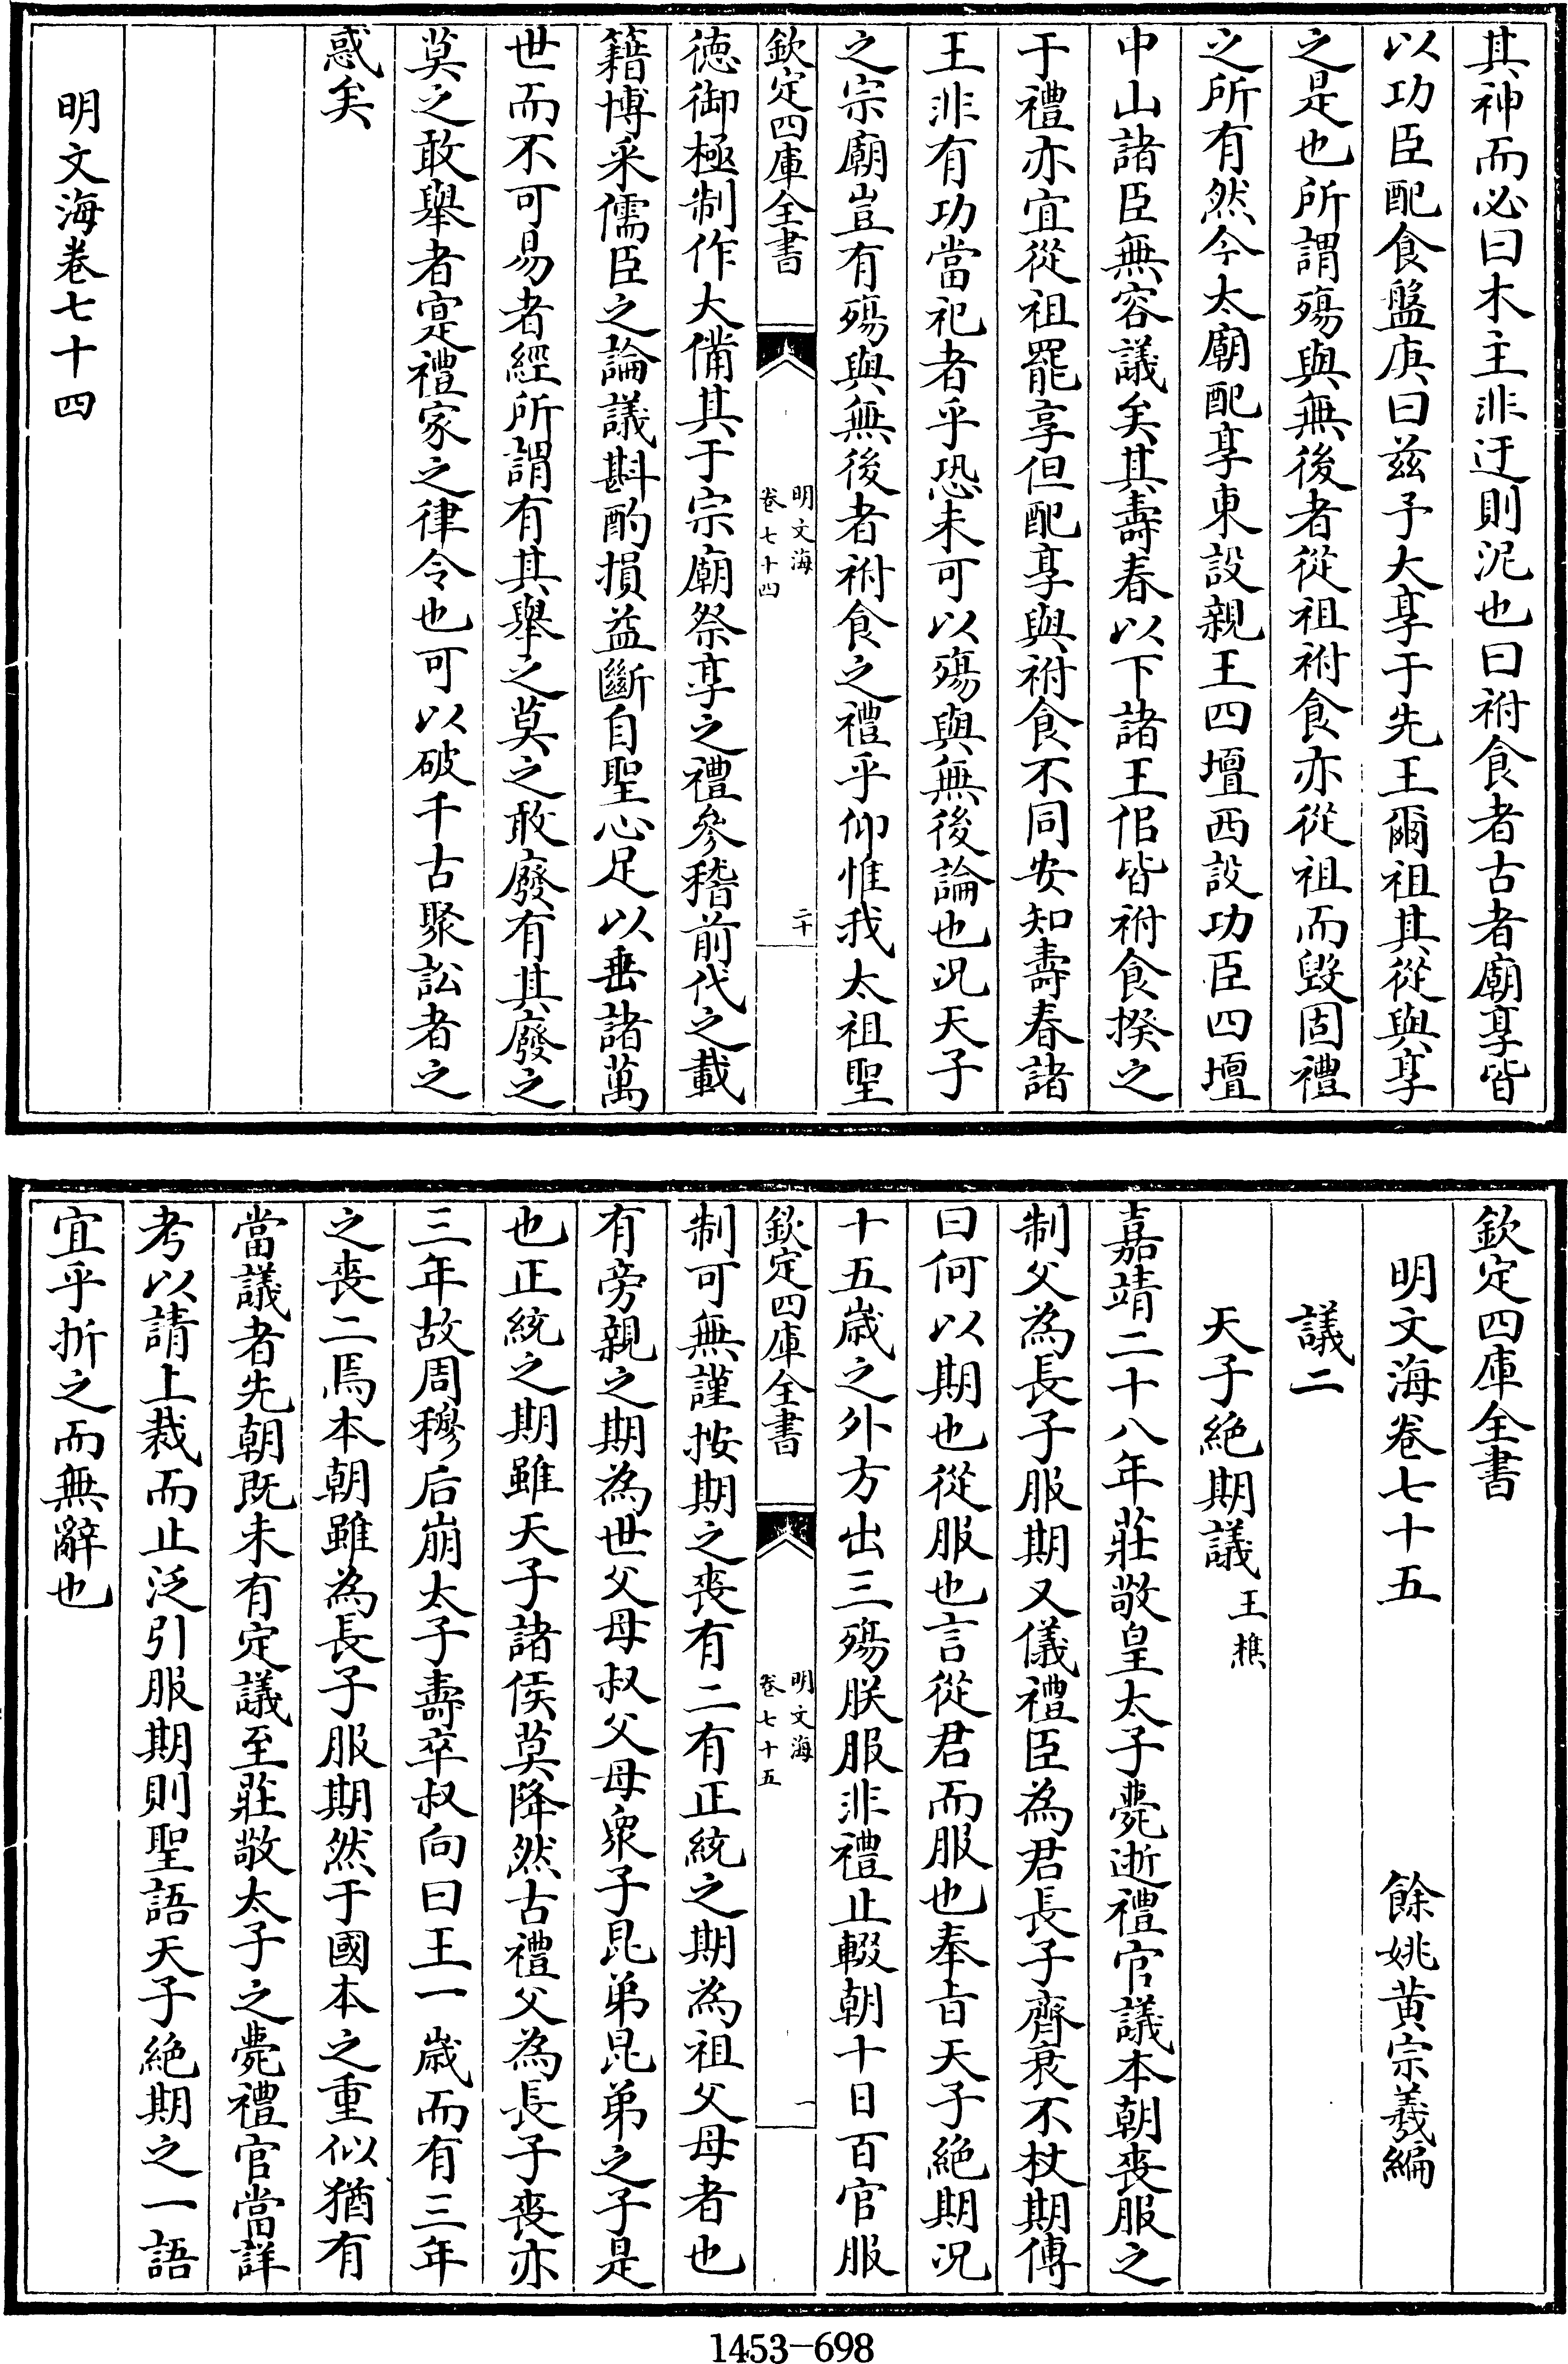 其神而必曰木主非迂則泥也曰祔食者古者廟享皆
以功臣配食盤庚曰兹予大享于先王爾祖其從與享
之是也所謂殤與無後者從祖祔食亦從祖而毀固禮
之所有然今太廟配享東設親王四壇西設功臣四壇
中山諸臣無容議矣其壽春以下諸王侶皆祔食揆之
于禮亦宜從祖罷享但配享與祔食不同安知壽春諸
王非有功當祀者乎恐未可以殤與無後論也况天子
之宗廟豈有殤與無後者祔食之禮乎仰惟我太祖聖
欽定四庫全書
明文海
卷七十四
二十
徳御極制作大備其于宗廟祭享之禮參稽前代之載
籍博采儒臣之論議斟酌損益斷自聖心足以垂諸萬
世而不可易者經所謂有其舉之莫之敢廢有其廢之
莫之敢舉者寔禮家之律令也可以破千古聚訟者之
惑矣
明文海卷七十四
欽定四庫全書
明文海卷七十五
餘姚黄宗羲編
議二
天子絶期議王樵
嘉靖二十八年莊敬皇太子薨逝禮官議本朝喪服之
制父為長子服期又儀禮臣為君長子齊衰不杖期傳
曰何以期也從服也言從君而服也奉旨天子絶期况
十五歳之外方出三殤朕服非禮止輟朝十日百官服
欽定四庫全書
明文海
卷七十五
一
制可無謹按期之喪有二有正統之期為祖父母者也
有旁親之期為世父母叔父母衆子昆弟昆弟之子是
也正統之期雖天子諸侯莫降然古禮父為長子喪亦
三年故周穆后崩太子壽卒叔向曰王一歳而有三年
之喪二焉本朝雖為長子服期然于國本之重似猶有
當議者先朝既未有定議至莊敬太子之薨禮官當詳
考以請上裁而止泛引服期則聖語天子絶期之一語
宜乎折之而無辭也
1453-698